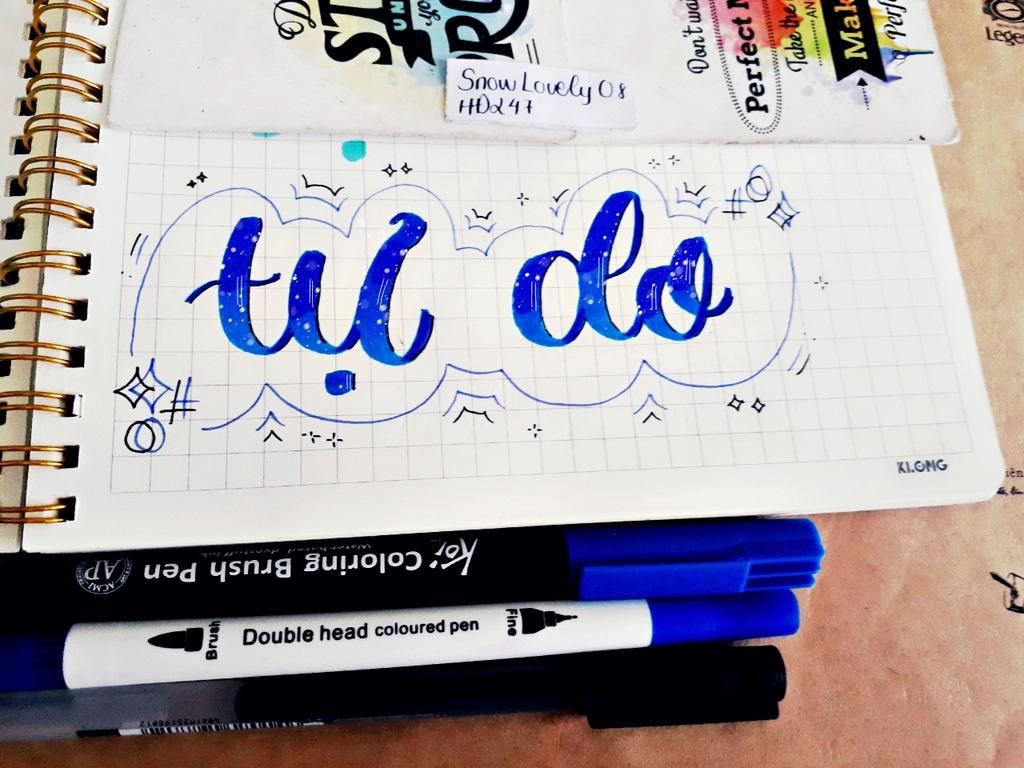 Don't wai
Perfect M
Take the
AN
Mak
Perf
Lege
ST
UN
Snow Lovely 08
HD247
tự do
KLONG
Koi Coloring Brush Pen
AP
Brush Double head coloured pen Fine